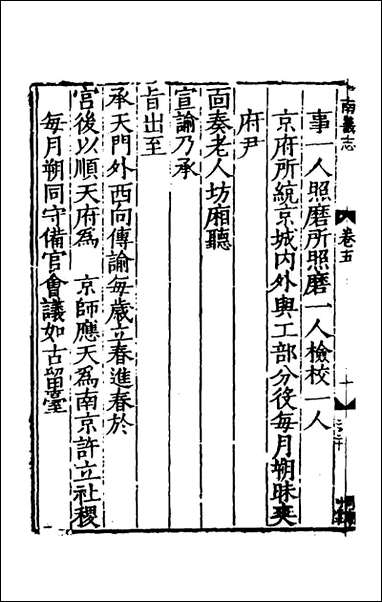 南畿志
卷五
十
事一人照磨所照磨一人檢校一人
京府所統京城內外與工部分役每月朔昧爽
府尹
面奏老人坊廂聽
宣諭乃承
旨出至
承天門外西向傳諭每歲立春進春於
宮後以順天府為 京師應天為南京許立社稷
每月朔同守備官會議如古留臺